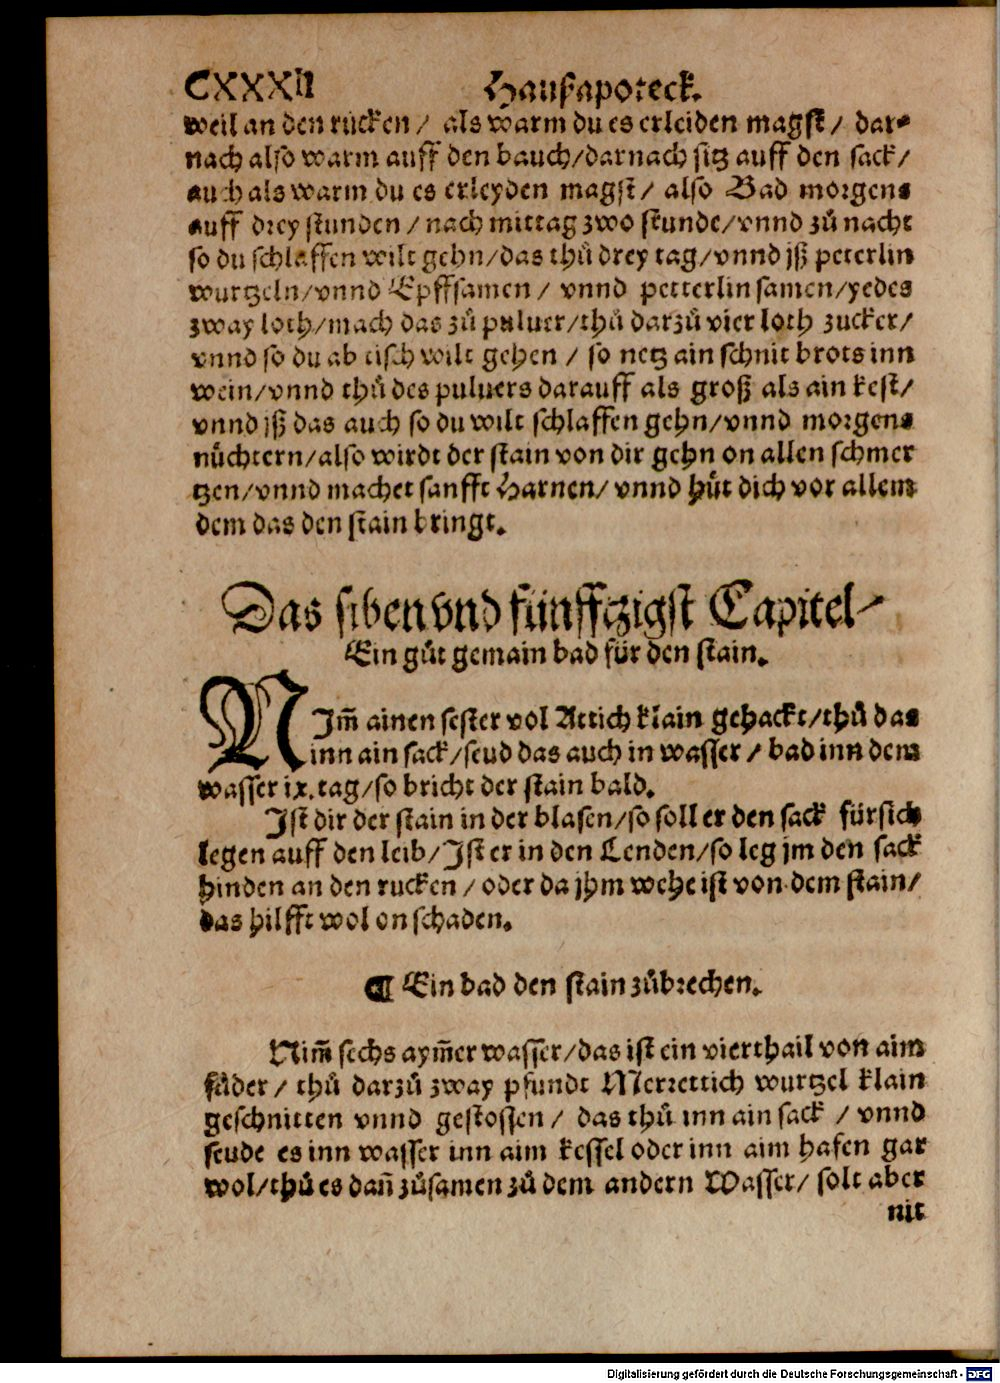 CXXXII Haußapoteck.
weil an den rucken / als warm du es erleiden magst / dar-
nach also warm auff den bauch/darnach sitz auff den sack/
auch als warm du es erleyden magst/ also Bad morgens
auff drey stunden / nach mittag zwo stunde/vnnd zů nacht
so du schlaffen wilt gehn/das thů drey tag/vnnd jß peterlin
wurtzeln/vnnd Epffsamen / vnnd petterlin samen/yedes
zway loth/mach das zů puluer/thů darzů vier loth zucker/
vnnd so du ab tisch wilt gehen / so netz ain schnit brots inn
wein/vnnd thů des puluers darauff als groß als ain kest/
vnnd jß das auch so du wilt schlaffen gehn/vnnd morgens
nüchtern/also wirdt der stain von dir gehn on allen schmer
tzen/vnnd machet sanfft Harnen/ vnnd hüt dich vor allem
dem das den stain bringt.
Das siben vnd fünfftzigst Capitel
Ein gůt gemain bad für den stain.
NIm̃ ainen sester vol Attich klain gehackt/thů das
inn ain sack/seud das auch in wasser / bad inn dem
wasser ix. tag/so bricht der stain bald.
Ist dir der stain in der blasen/so soll er den sack fürsich
legen auff den leib/Ist er in den Lenden/so leg jm den sack
hinden an den rucken / oder da jhm wehe ist von dem stain/
das hilfft wol on schaden.
¶ Ein bad den stain zůbrechen.
Nim̃ sechs aym̃er wasser/das ist ein vierthail von aim
fůder / thů darzů zway pfundt Merrettich wurtzel klain
geschnitten vnnd gestossen / das thů inn ain sack / vnnd
seude es inn wasser inn aim kessel oder inn aim hafen gar
wol/thů es dañ zůsamen zů dem andern Wasser/ solt aber
nit
Digitalisierung gefördert durch die Deutsche Forschungsgemeinschaft - DFG